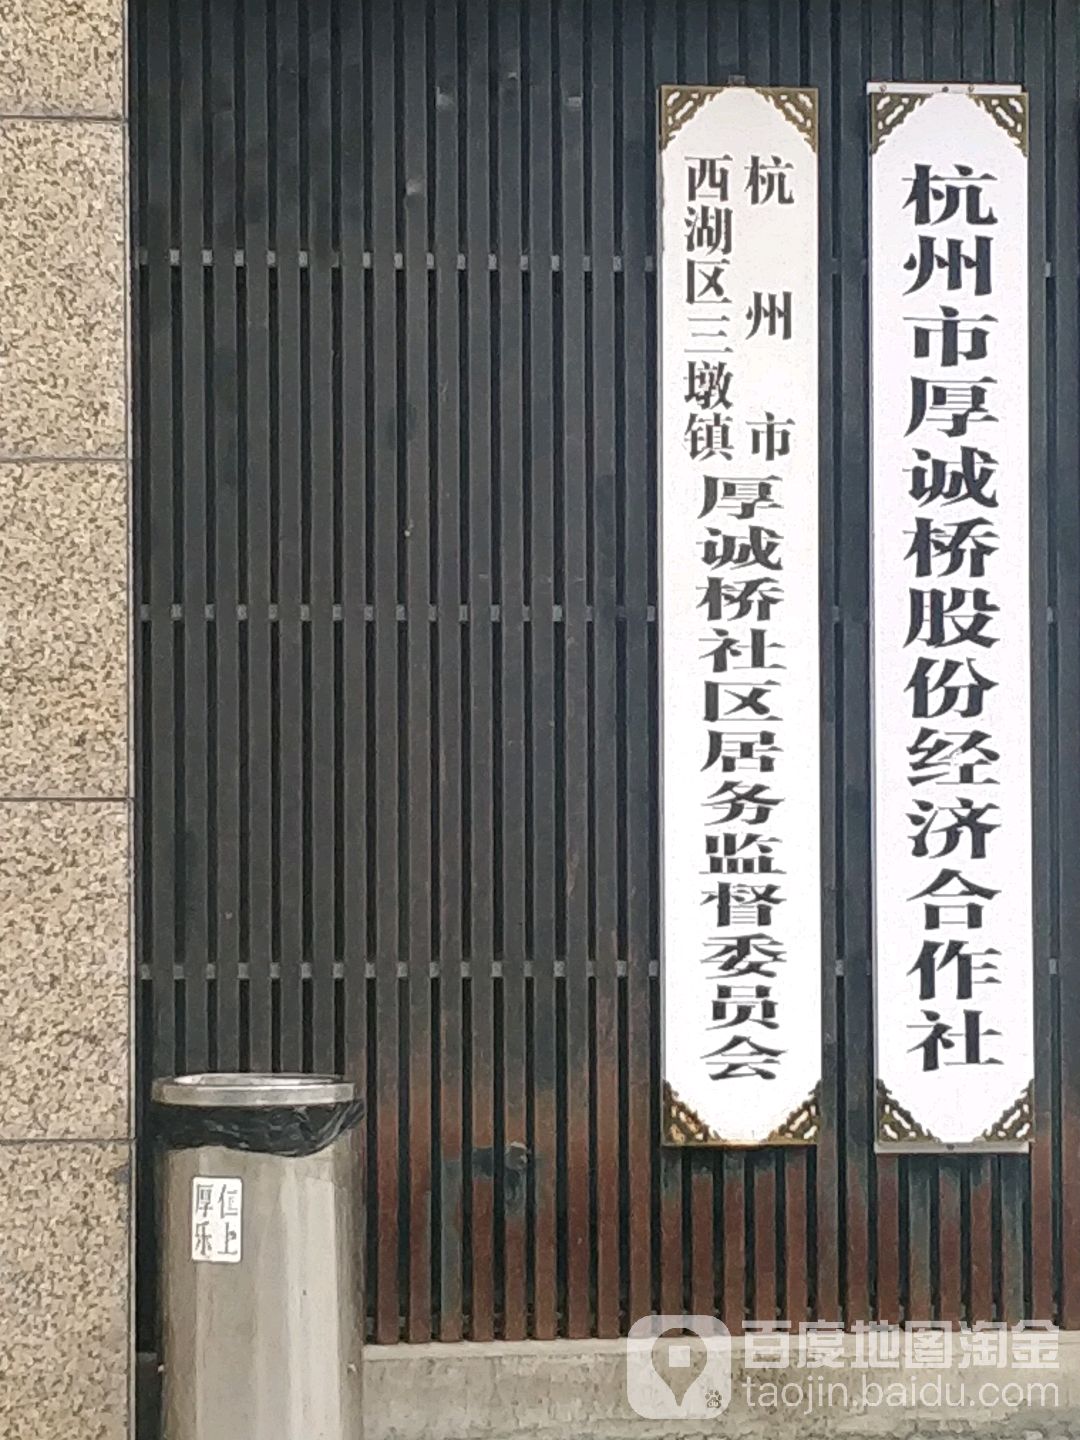 杭州市厚诚桥股份经济合作社
杭州市
西湖区三墩镇
厚诚桥社区居务监督委员会
厚仁
乐上
百度地图淘金
taojin.baidu.com